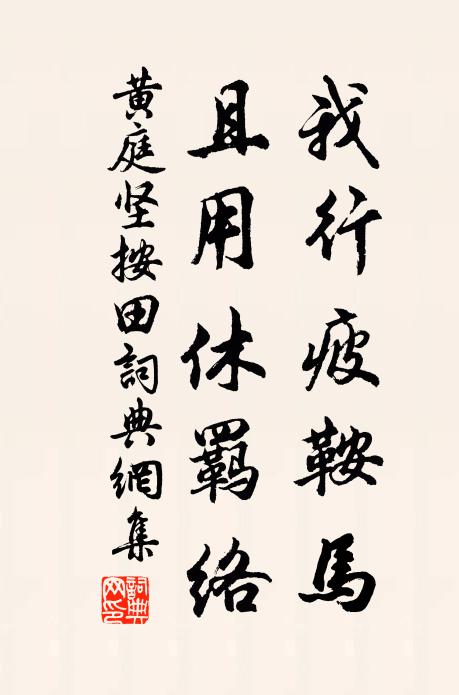 我行疲鞍馬
且用休羈絡
黄庭坚按田詞典網集
詞典網印